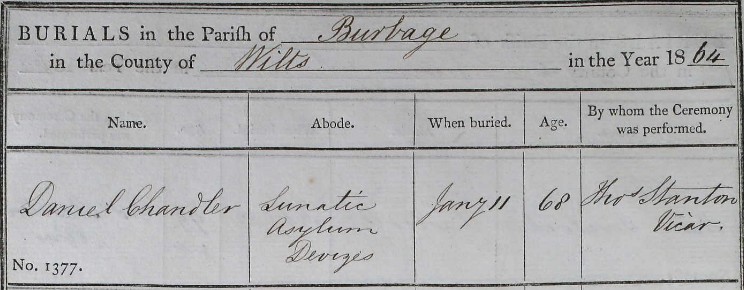 BURIALS in the Parish of Burbage
in the County of Wilts. in the Year 1864
Name. Abode. When buried. Age. By whom the Ceremony was performed.
Daniel Chandler Lunatic Asylum Devizes Jany 11 68 Thos Stanton Vicar.
No. 1377.